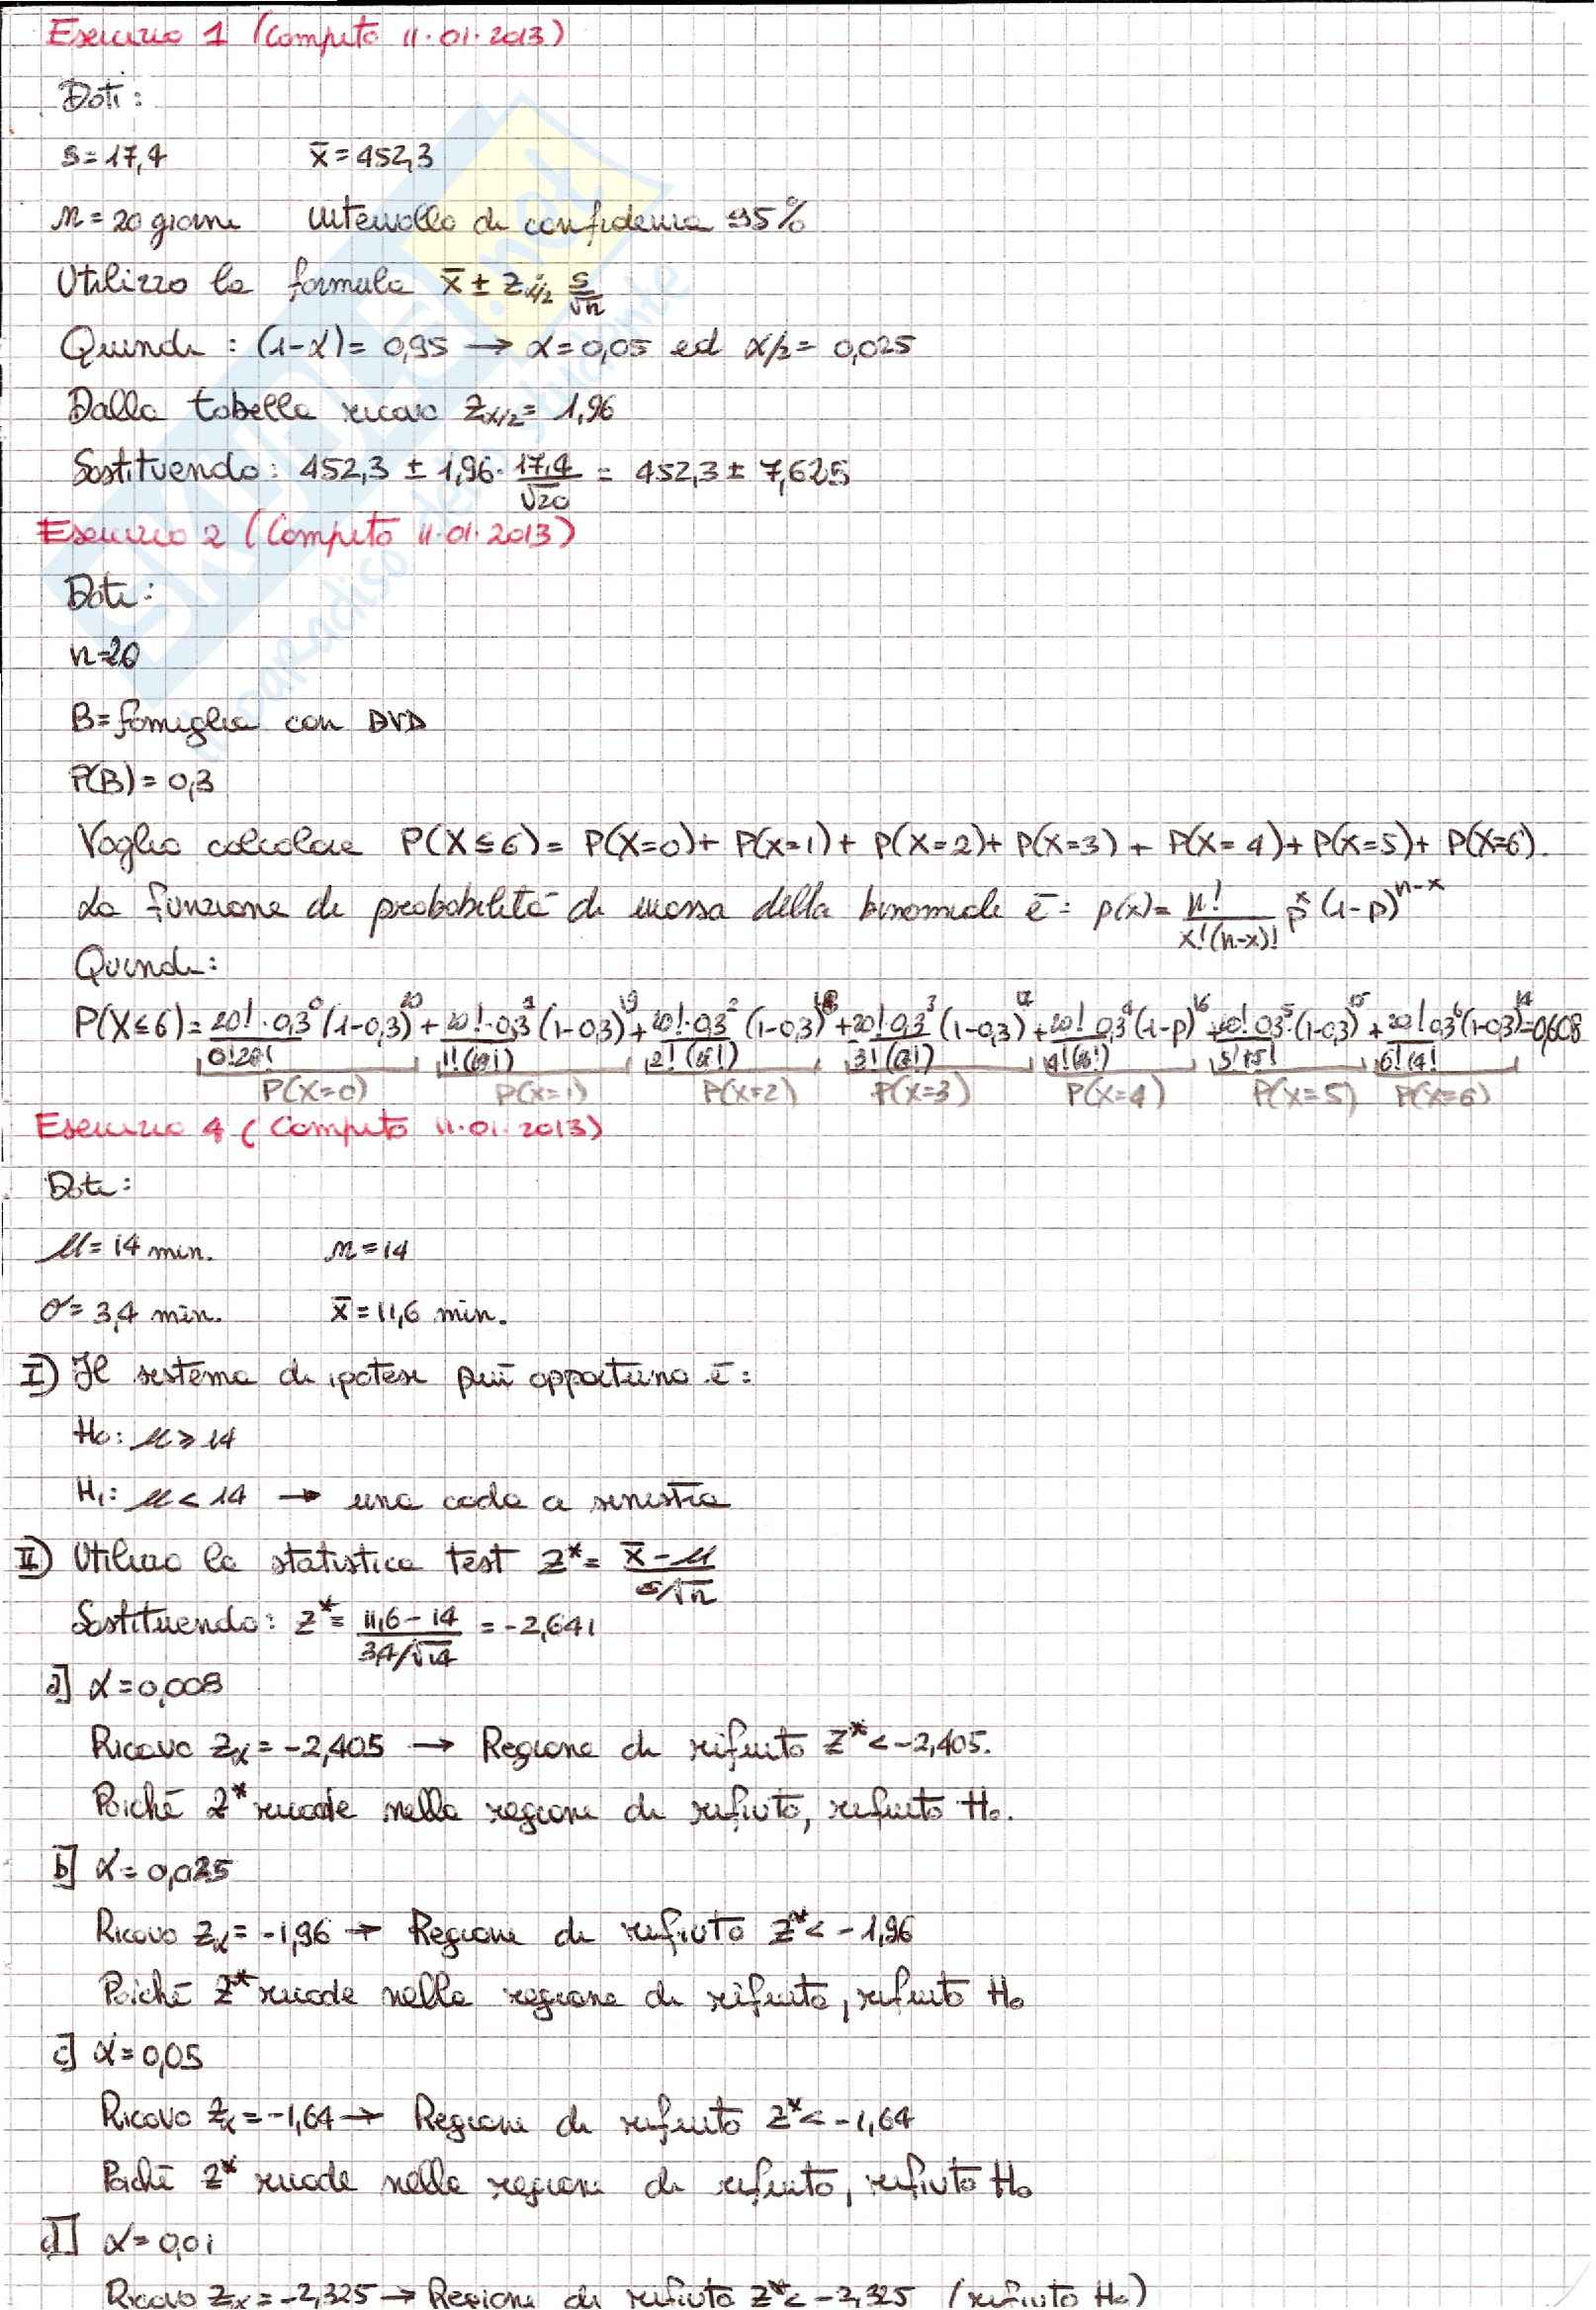 Esercizio 1 (Compito 11.01.2013)
Dati:
s=17,4 x̄=452,3
n=20 giorni intervallo di confidenza 95%
Utilizzo la formula x̄ ± z_α/2 s/√n
Quindi: (1-α)=0,95 → α=0,05 ed α/2=0,025
Dalla tabella ricavo z_α/2=1,96
Sostituendo: 452,3 ± 1,96·17,4/√20 = 452,3 ± 7,625
Esercizio 2 (Compito 11.01.2013)
Dati:
n=20
B=famiglia con DVD
P(B)=0,3
Voglio calcolare P(X≤6)= P(X=0)+ P(X=1)+ P(X=2)+ P(X=3)+ P(X=4)+ P(X=5)+ P(X=6).
La funzione di probabilità di massa della binomiale è: p(x)= n!/x!(n-x)! p^x (1-p)^n-x
Quindi:
P(X≤6)= 20!·0,3^0(1-0,3)^20/0!20! + 20!·0,3^1(1-0,3)^19/1!(19!) + 20!·0,3^2(1-0,3)^18/2!(18!) + 20!·0,3^3(1-0,3)^17/3!(17!) + 20!·0,3^4(1-p)^16/4!(16!) + 20!·0,3^5(1-0,3)^15/5!15! + 20!·0,3^6(1-0,3)^14/6!14! =0,608
P(X=0) P(X=1) P(X=2) P(X=3) P(X=4) P(X=5) P(X=6)
Esercizio 4 (Compito 11.01.2013)
Dati:
μ=14 min. n=14
σ=3,4 min. x̄=11,6 min.
I) Il sistema di ipotesi più opportuno è:
H₀: μ≥14
H₁: μ<14 → una coda a sinistra
II) Utilizzo la statistica test Z*= x̄-μ/σ/√n
Sostituendo: Z*= 11,6-14/3,4/√14 = -2,641
a] α=0,008
Ricavo Zα=-2,405 → Regione di rifiuto Z*<-2,405.
Poiché Z* ricade nella regione di rifiuto, rifiuto H₀.
b] α=0,025
Ricavo Zα=-1,96 → Regione di rifiuto Z*<-1,96
Poiché Z* ricade nella regione di rifiuto, rifiuto H₀
c] α=0,05
Ricavo Zα=-1,64 → Regione di rifiuto Z*<-1,64
Poiché Z* ricade nella regione di rifiuto, rifiuto H₀
d] α=0,01
Ricavo Zα=-2,325 → Regione di rifiuto Z*<-2,325 (rifiuto H₀)